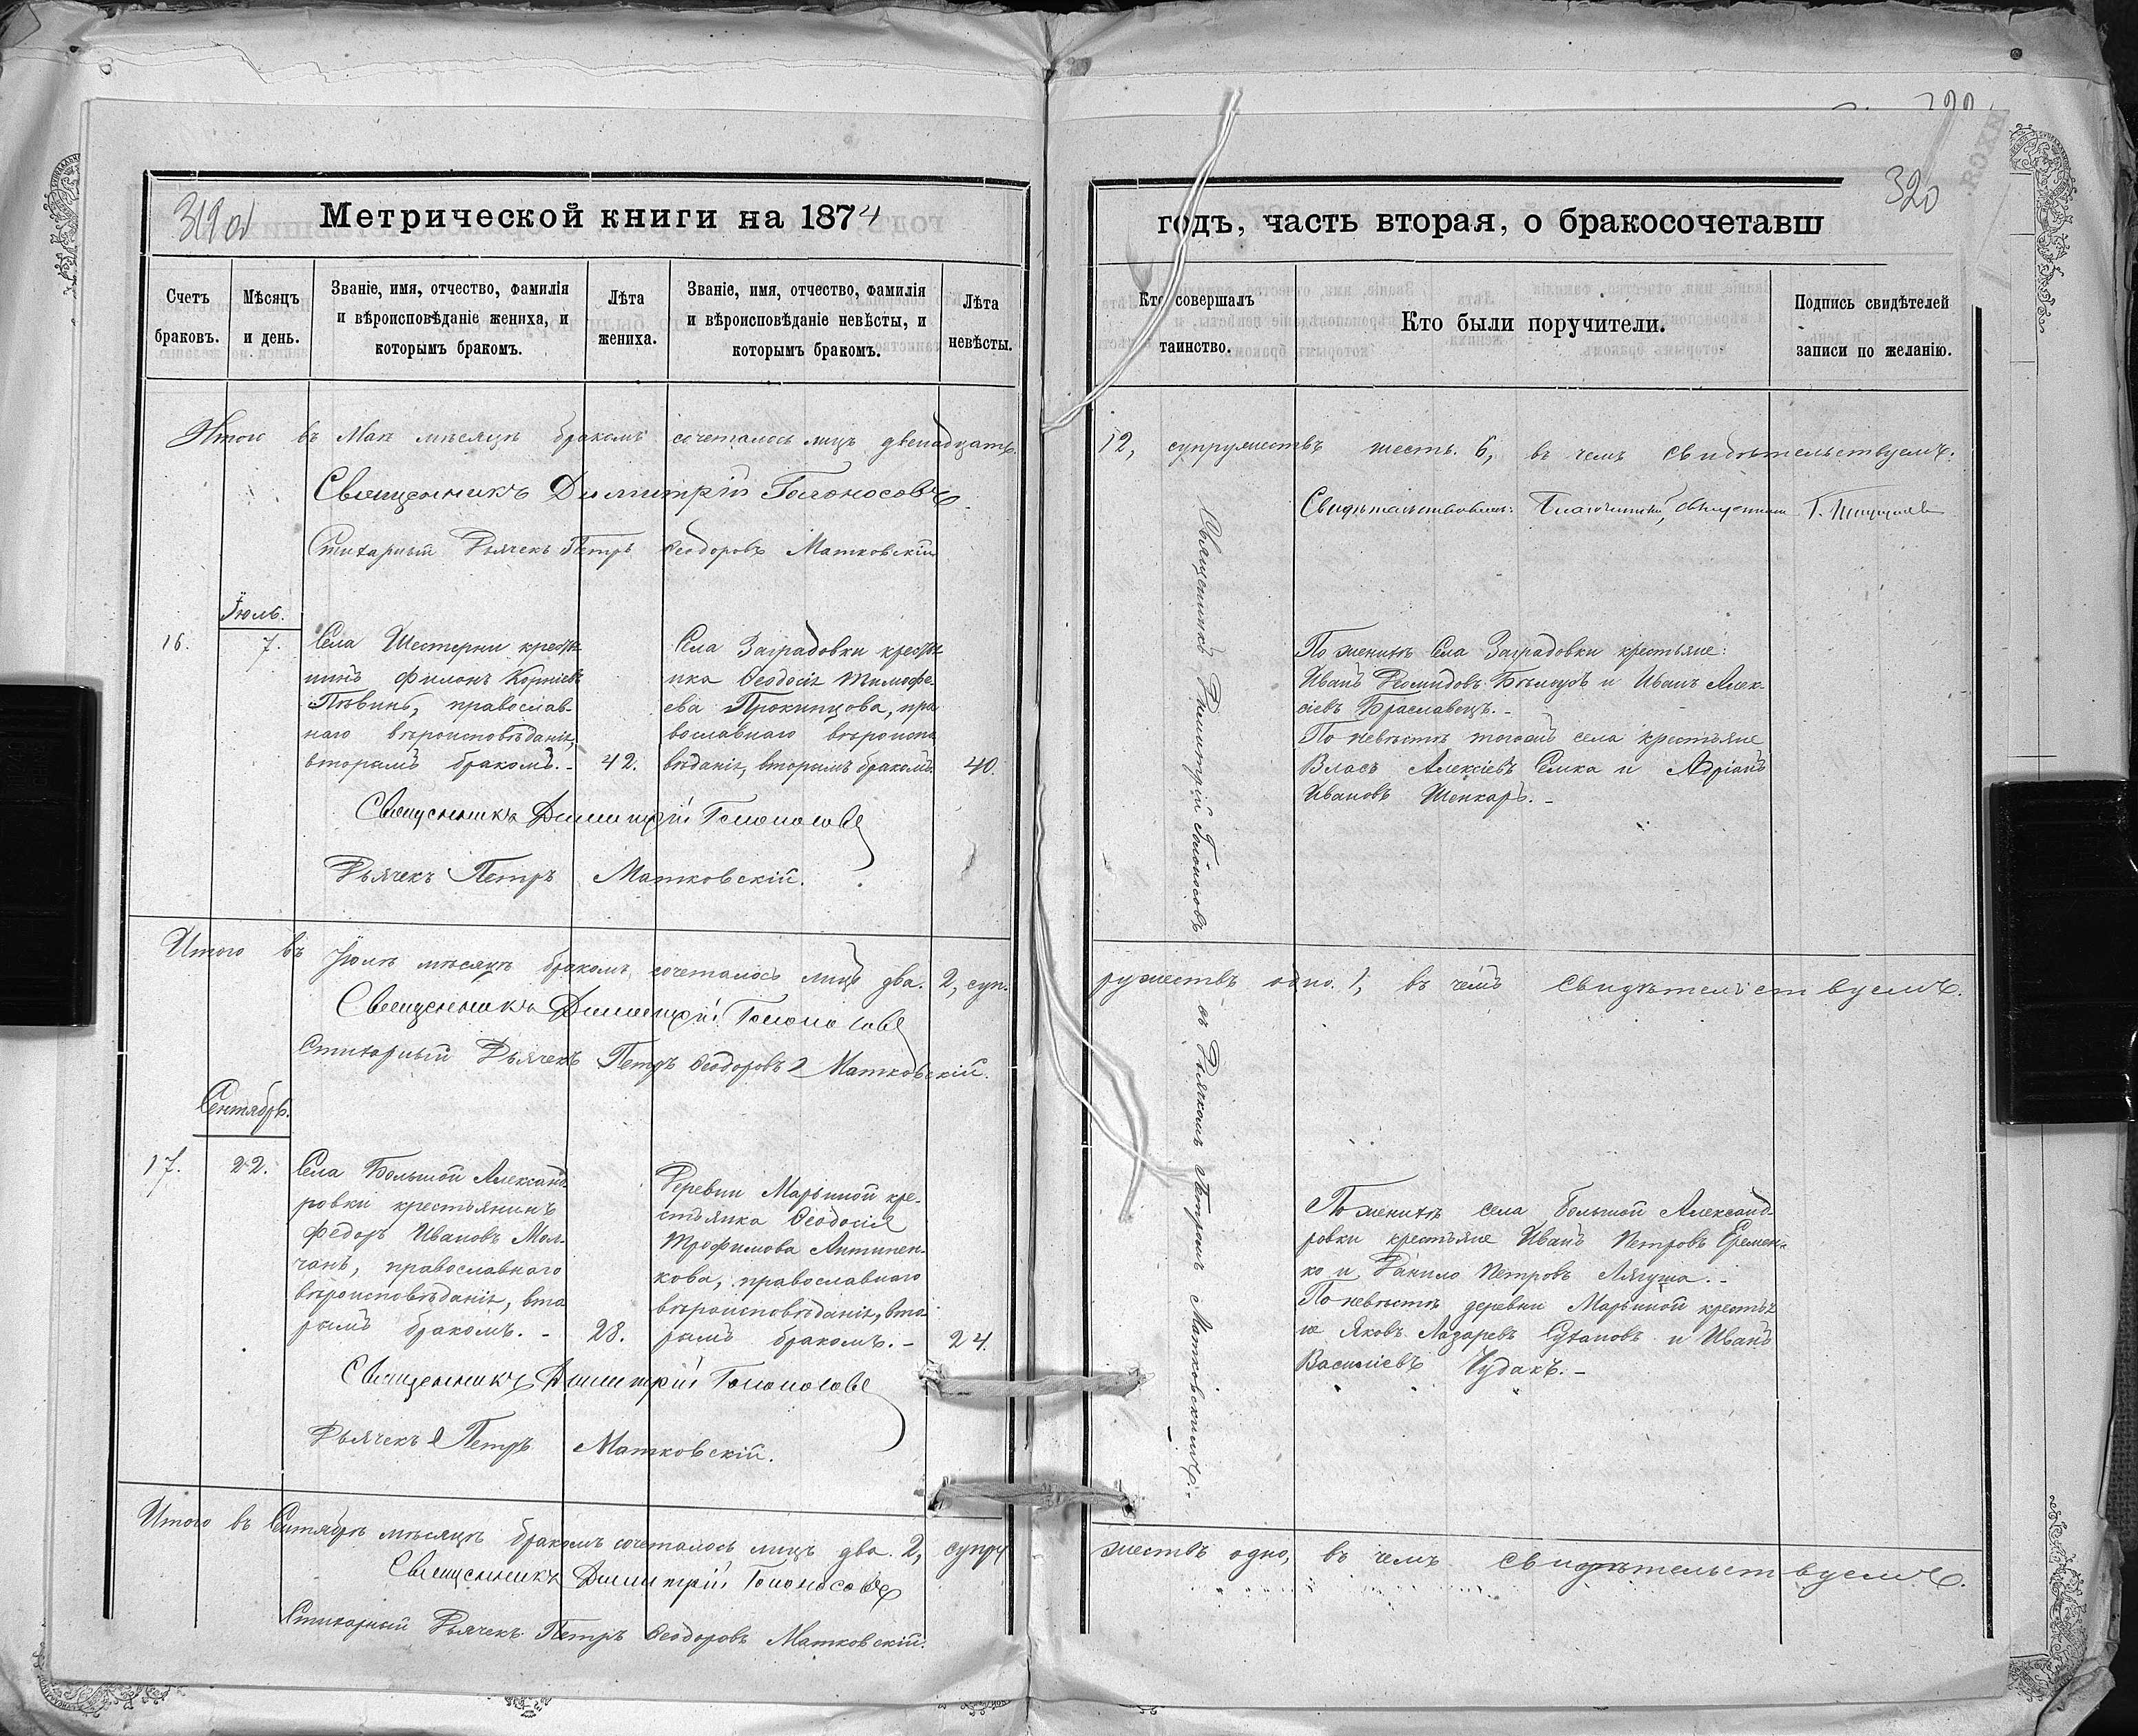 319 об
Метрической книги на 1874
Счетъ браковъ.
Мѣсяцъ и день.
Званіе, имя, отчество, фамилія
и вѣроисповѣданіе жениха, и
которымъ бракомъ.
Лѣта жениха.
Званіе, имя, отчество, фамилія
и вѣроисповѣданіе невѣсты, и
которымъ бракомъ.
Лѣта невѣсты.
Итого въ Маѣ мѣсяцѣ бракомъ сочеталось лицъ двенадцать.
Священникъ Димитрій Голоносовъ
Стихарный Дьячекъ Петръ Ѳеодоровъ Матковскій
Іюль.
16.
7.
Села Шестерни крестья
нинъ Филонъ Корніевъ
Пѣвинъ, православ-
наго вѣроисповѣданія,
вторымъ бракомъ. -
42.
Села Заградовки крестья
нка Ѳеодосія Тимоѳе-
ева Прокипцова, пра
вославнаго вѣроиспо
вѣданія, вторымъ бракомъ.
40.
Священникъ Димитрій Голоносовъ
Дьячекъ Петръ Матковскій.
Итого въ Іюлѣ мѣсяцѣ бракомъ сочеталось лицъ два. 2, суп-
Священникъ Димитрій Голоносовъ
Стихарный Дьячекъ Петръ Ѳеодоровъ Матковскій.
Сентябрь.
17.
22.
Села Большой Александ-
ровки крестьянинъ
Федоръ Ивановъ Мол-
чанъ, православнаго
вѣроисповѣданія, вто
рымъ бракомъ. -
28.
Деревни Марьиной кре-
стьянка Ѳеодосія
Трофимова Антипен-
кова, православнаго
вѣроисповѣданія, вто-
рымъ бракомъ. -
24.
Священникъ Димитрій Голоносовъ
Дьячекъ Петръ Матковскій.
Итого въ Сентябрѣ мѣсяцѣ бракомъ сочеталось лицъ два. 2, супру
Священникъ Димитрій Голоносовъ
Стихарный Дьячекъ Петръ Ѳеодоровъ Матковскій.
320
годъ, часть вторая, о бракосочетавш
Кто совершалъ
таинство.
Кто были поручители.
Подпись свидѣтелей
записи по желанію.
12, супружествъ шесть. 6, въ чемъ свидѣтельствуемъ.
Священникъ Димитрій Голоносовъ съ Дьячкомъ Петромъ Матковскимъ. -
По женихѣ Села Заградовки крестьяне:
Иванъ Деомидовъ Бѣлоусъ и Иванъ Алек-
сіевъ Браславецъ. -
По невѣстѣ тогожъ села крестьяне
Власъ Алексіевъ Семка и Адріанъ
Ивановъ Шенкарь. -
ружествъ одно. 1, въ чемъ свидѣтельствуемъ.
По женихѣ села Большой Александ-
ровки крестьяне Иванъ Петровъ Еремен-
ко и Данило Петровъ Лягуша. -
По невѣстѣ деревни Марьиной крестья
не Яковъ Лазаревъ Сутановъ и Иванъ
Василіевъ Чудакъ. -
жествъ одно, въ чемъ свидѣтельствуемъ.